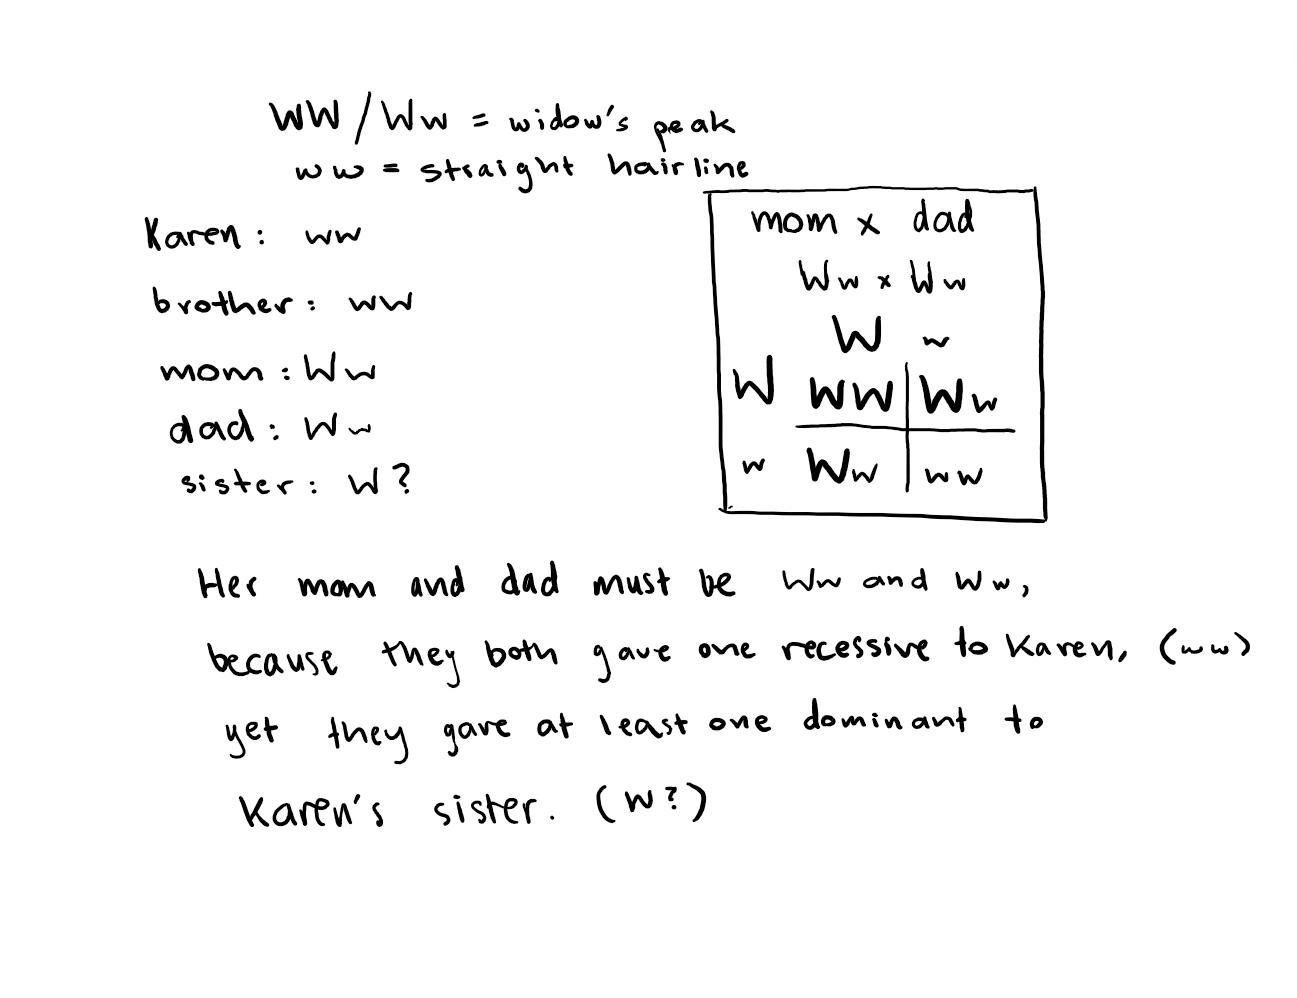 WW/Ww = widow's peak
ww = straight hairline
Karen: ww
brother: ww
mom: Ww
dad: Ww
sister: W?
mom x dad
Ww x Ww
W w
W WW Ww
w Ww ww
Her mom and dad must be Ww and Ww,
because they both gave one recessive to Karen, (ww)
yet they gave at least one dominant to
Karen's sister. (W?)